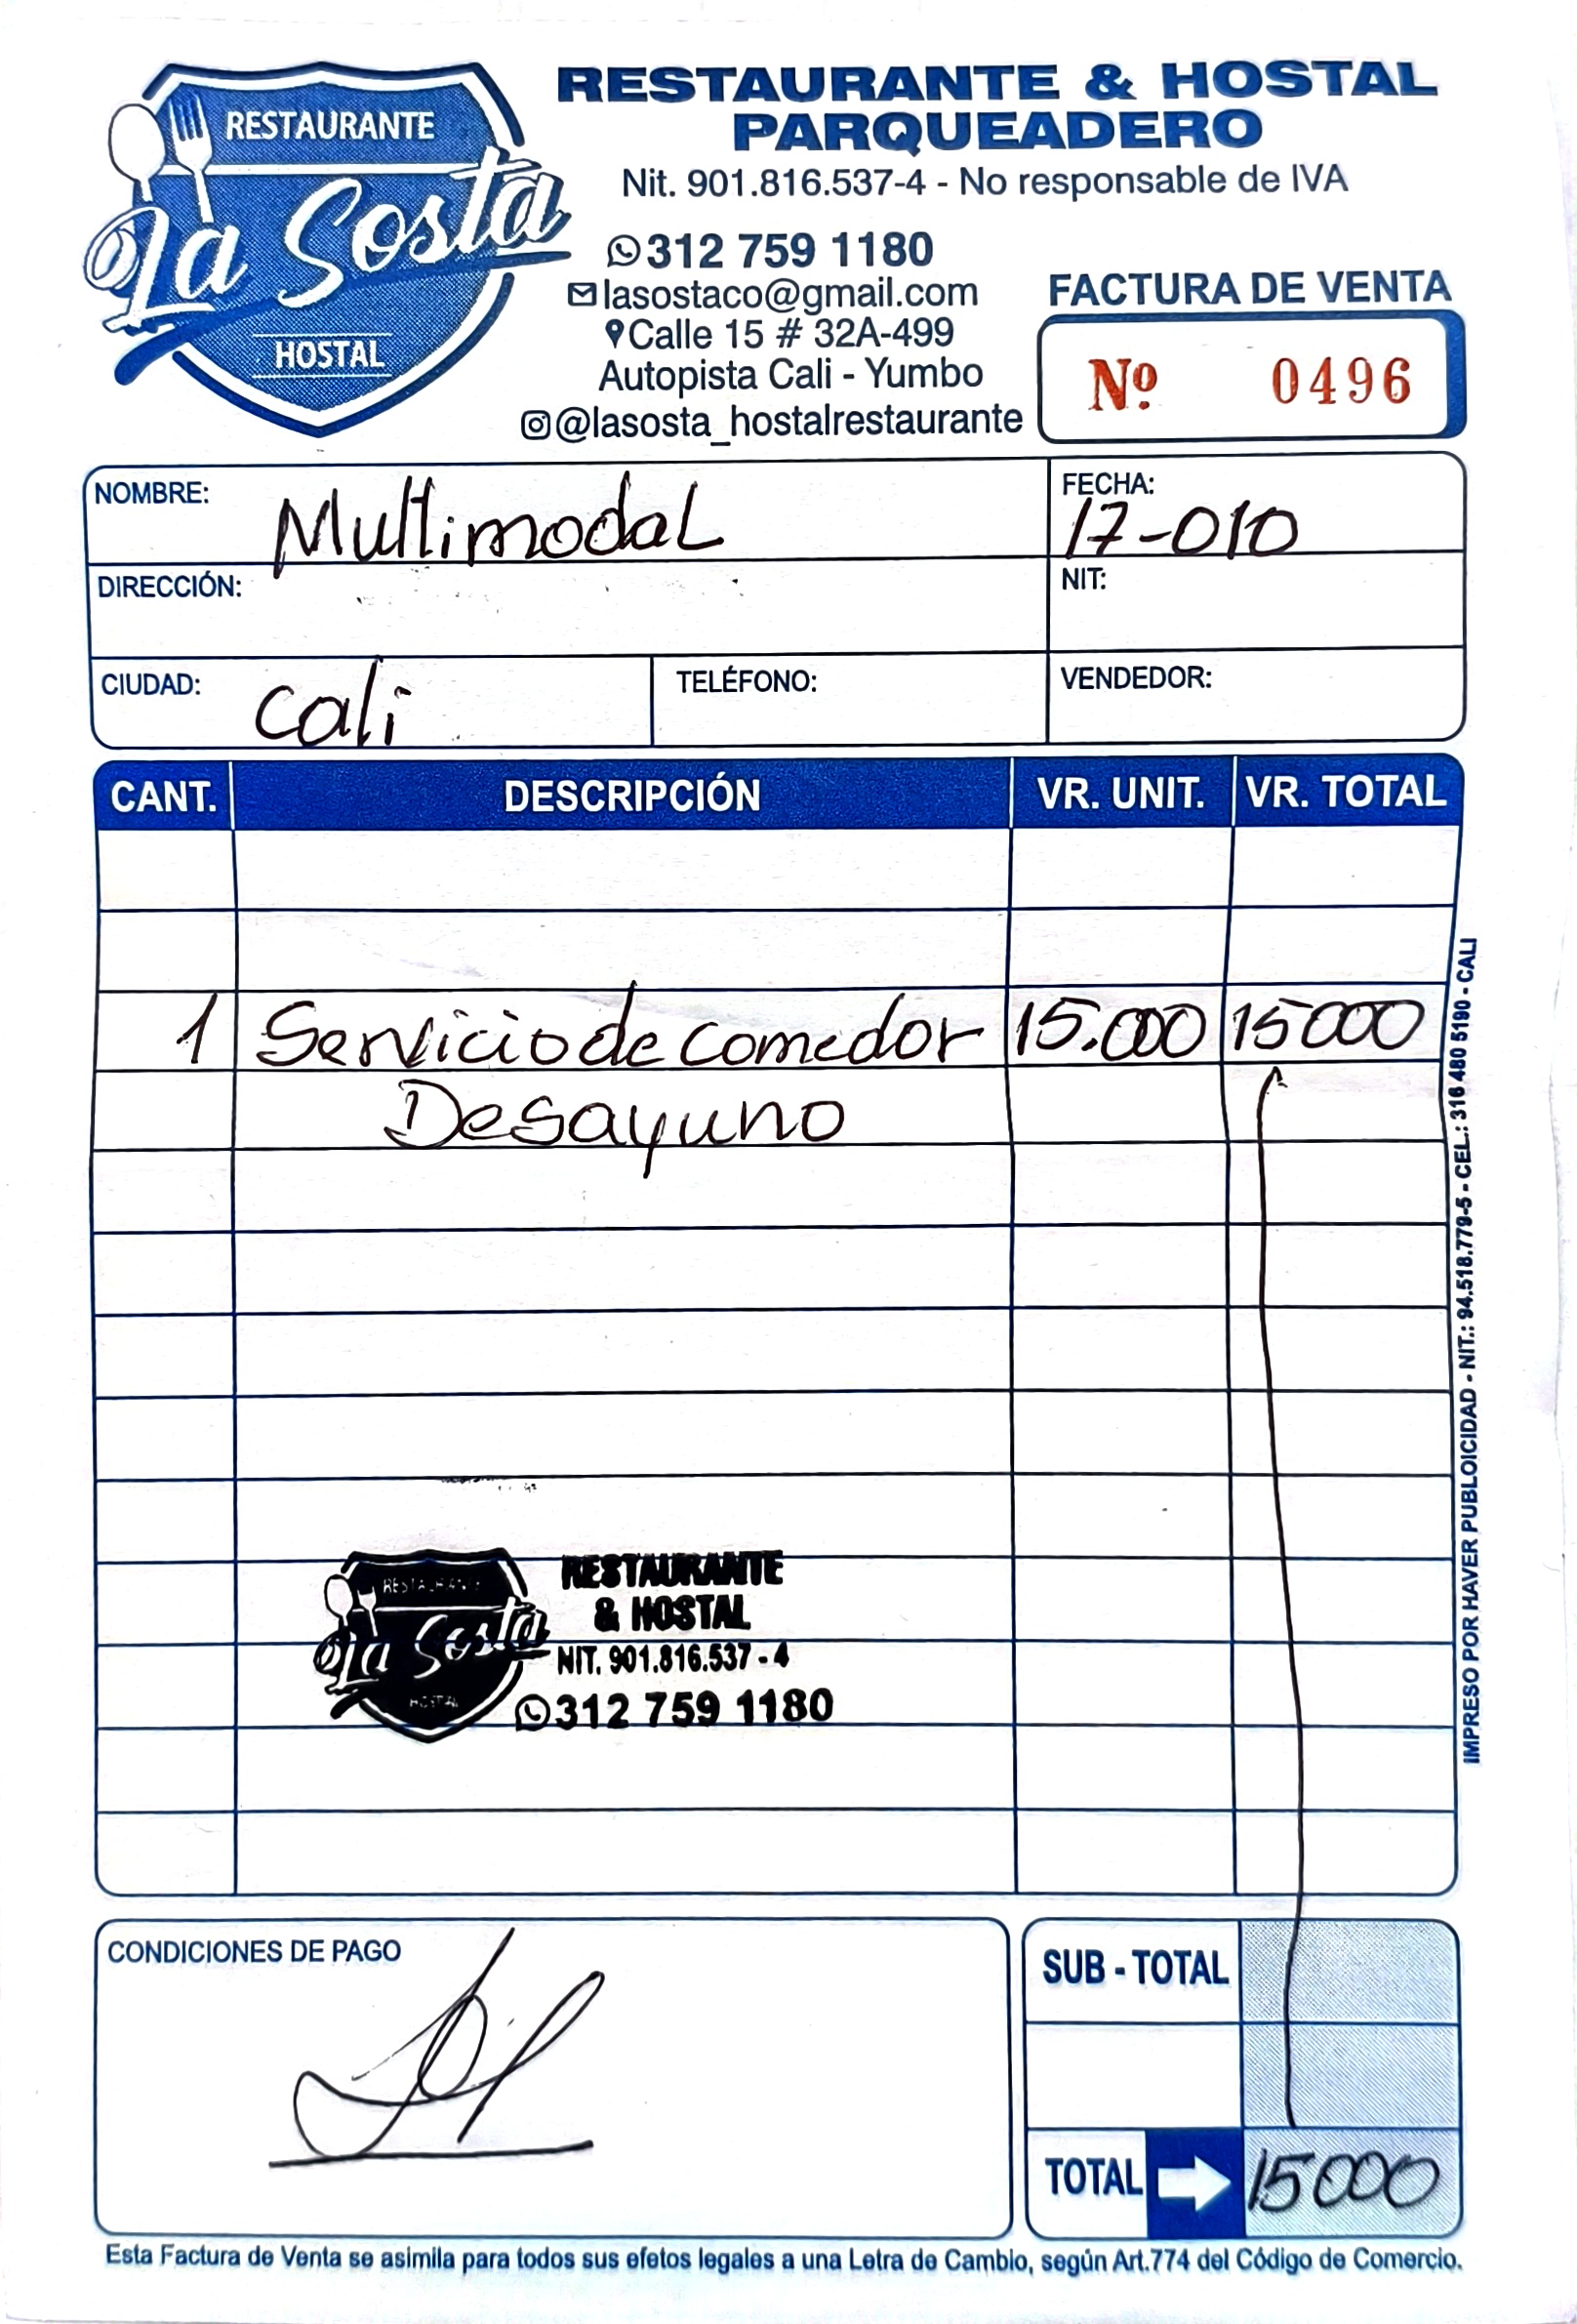 RESTAURANTE
La Sosta
HOSTAL
RESTAURANTE & HOSTAL
PARQUEADERO
Nit. 901.816.537-4 - No responsable de IVA
312 759 1180
lasostaco@gmail.com
Calle 15 # 32A-499
Autopista Cali - Yumbo
@lasosta_hostalrestaurante
FACTURA DE VENTA
Nº 0496
NOMBRE: Multimodal
FECHA: 17-010
DIRECCIÓN:
NIT:
CIUDAD: Cali
TELÉFONO:
VENDEDOR:
CANT. DESCRIPCIÓN VR. UNIT. VR. TOTAL
1 Servicio de comedor 15.000 15000
Desayuno
RESTAURANTE
La Sosta
HOSTAL
RESTAURANTE
& HOSTAL
NIT. 901.816.537 - 4
312 759 1180
IMPRESO POR HAVER PUBLOICIDAD - NIT.: 94.518.779-5 - CEL.: 316 480 5190 - CALI
CONDICIONES DE PAGO
SUB - TOTAL
TOTAL 15000
Esta Factura de Venta se asimila para todos sus efetos legales a una Letra de Cambio, según Art.774 del Código de Comercio.